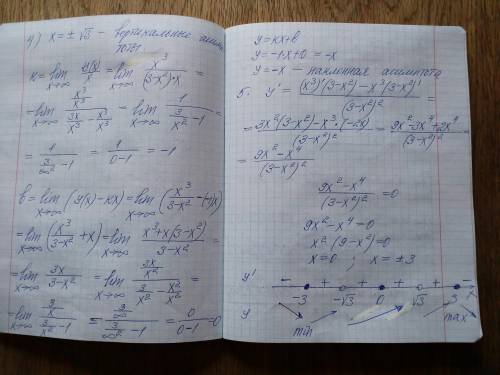 4) x = ± √3 – вертикальные асимп
тоты
k = lim x→∞ y(x)/x = lim x→∞ x³/((3-x²)·x) =
= lim x→∞ (x³/x³)/(3x/x³ - x³/x³) = lim x→∞ 1/(3/x² - 1) =
= 1/(3/∞² - 1) = 1/(0-1) = -1
b = lim x→∞ (y(x) - kx) = lim x→∞ (x³/(3-x²) - (-1)x)
= lim x→∞ (x³/(3-x²) + x) = lim x→∞ (x³+x(3-x²))/(3-x²) =
= lim x→∞ 3x/(3-x²) = lim x→∞ (3x/x²)/(3/x² - x²/x²) =
= lim x→∞ (3/x)/(3/x² - 1) = (3/∞)/(3/∞² - 1) = 0/(0-1) = 0
y = kx+b
y = -1·x+0 = -x
y = -x – наклонная асимптота
5. y' = ((x³)'(3-x²) - x³(3-x²)')/(3-x²)² =
= (3x²(3-x²) - x³·(-2x))/(3-x²)² = (9x²-3x⁴+2x⁴)/(3-x²)² =
= (9x²-x⁴)/(3-x²)²
(9x²-x⁴)/(3-x²)² = 0
9x²-x⁴=0
x²(9-x²)=0
x=0 ; x=±3
y' - + + + + -
-3 -√3 0 √3 3
y min max